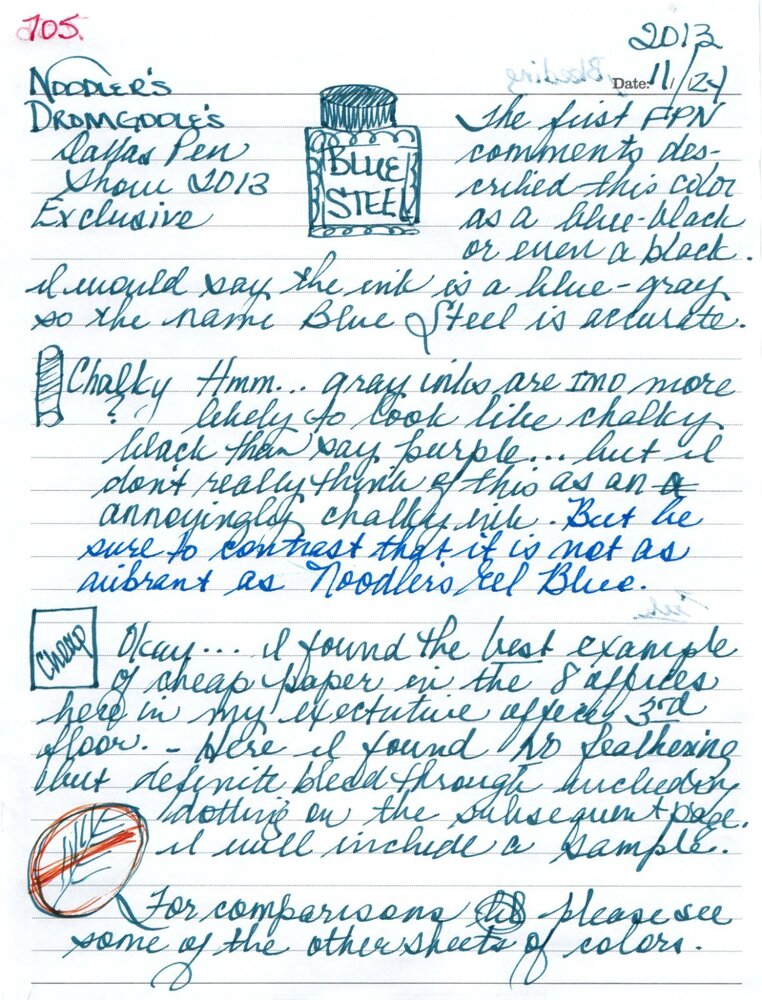 705.
2013
Date: 11/24
NOODLER'S
DROMGOOLE'S
Dallas Pen
Show 2013
Exclusive
BLUE
STEEL
The first FPN
comments des-
cribed this color
as a blue-black
or even a black.
I would say the ink is a blue-gray
so the name Blue Steel is accurate.
Chalky
?
Hmm... gray inks are IMO more
likely to look like chalky
black than say purple... but I
don't really think of this as an a
annoyingly chalky ink. But be
sure to contrast that it is not as
vibrant as Noodlers eel Blue.
Cheap
Okay... I found the best example
of cheap paper in the 8 offices
here in my exectutive offices 3rd
floor. - Here I found no feathering
but definite bleedthrough including
dotting on the subsequent page.
I will include a sample.
For comparisons please see
some of the other sheets of colors.